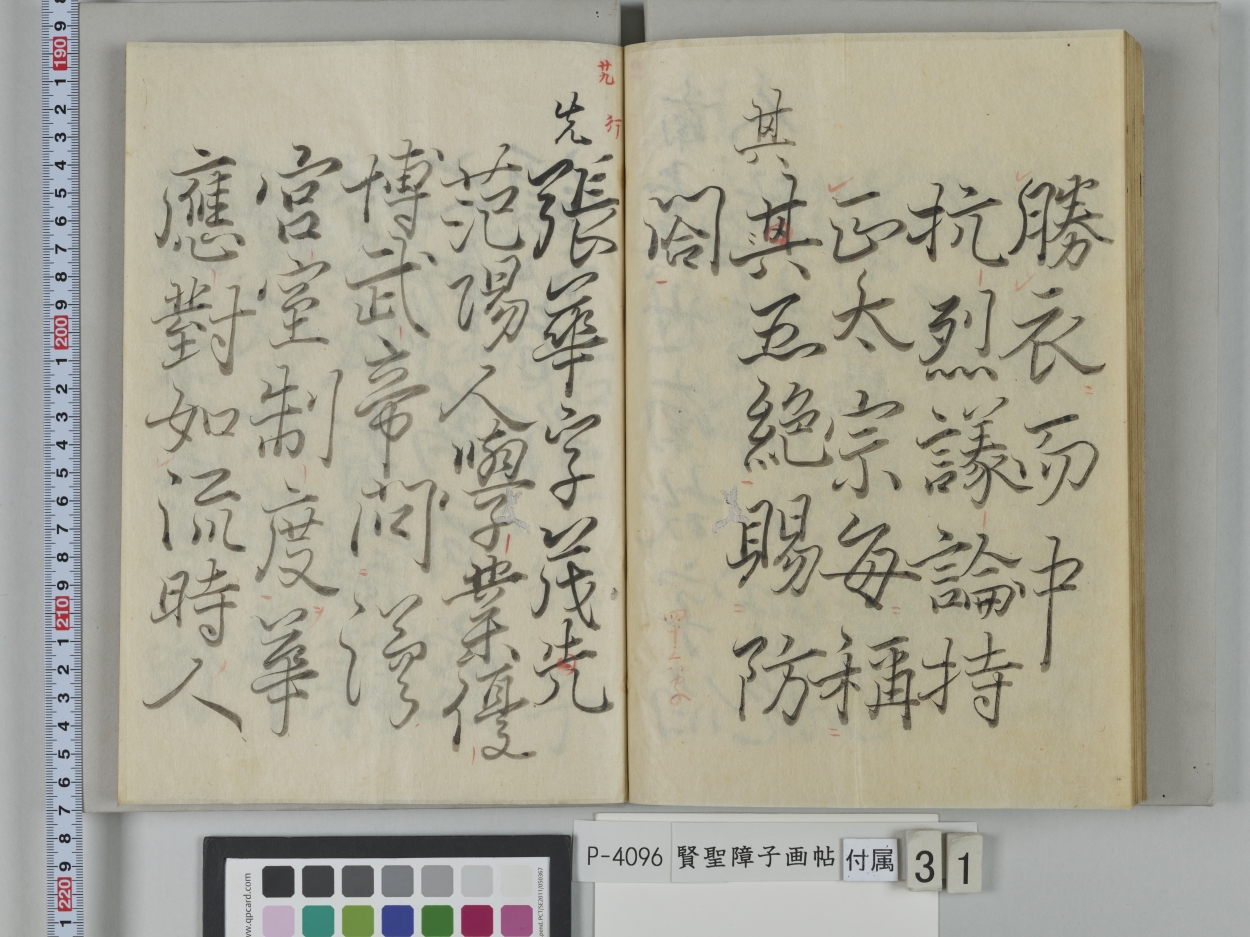 勝衣而中
抗烈議論持
正太宗每稱
其五絶賜防
其
閤
廿九
行
先
張華字茂先
范陽人學業優
博武帝問漢
宮室制度華
應對如流時人
P-4096
賢聖障子画帖
付属
3
1
www.qpcard.com